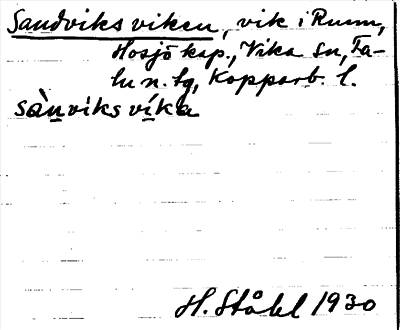 Sandviksviken, vik i Runn,
Hosjö kap., Vika sn, Fa-
lu n. tg, Kopparb. l.
sànviksvíka
H. Ståhl 1930